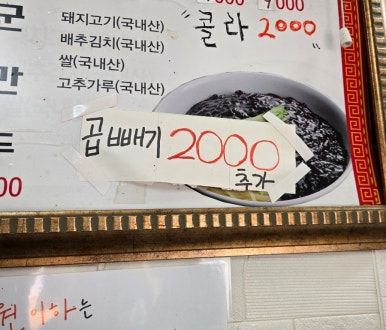 군
돼지고기(국내산)
배추김치(국내산)
쌀(국내산)
고추가루(국내산)
만
드
000
"콜라 2000"
곱빼기 2000
추가
원 이하는